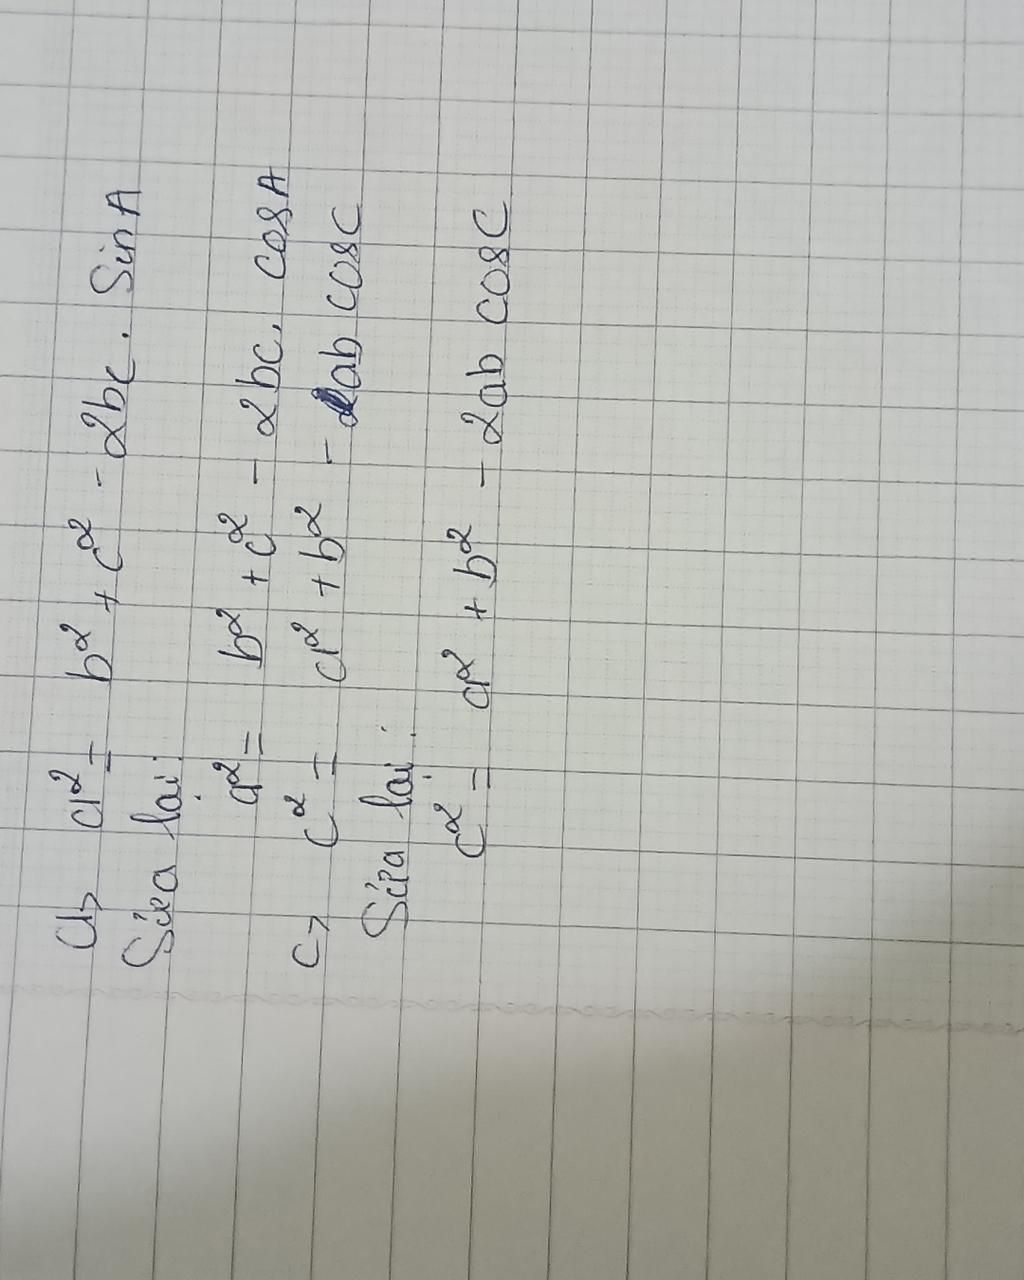 a, a² = b² + c² - 2bc. Sin A
Sửa lại:
a² = b² + c² - 2bc. cos A
c, c² = a² + b² - 2ab cos C
Sửa lại:
c² = a² + b² - 2ab cos C